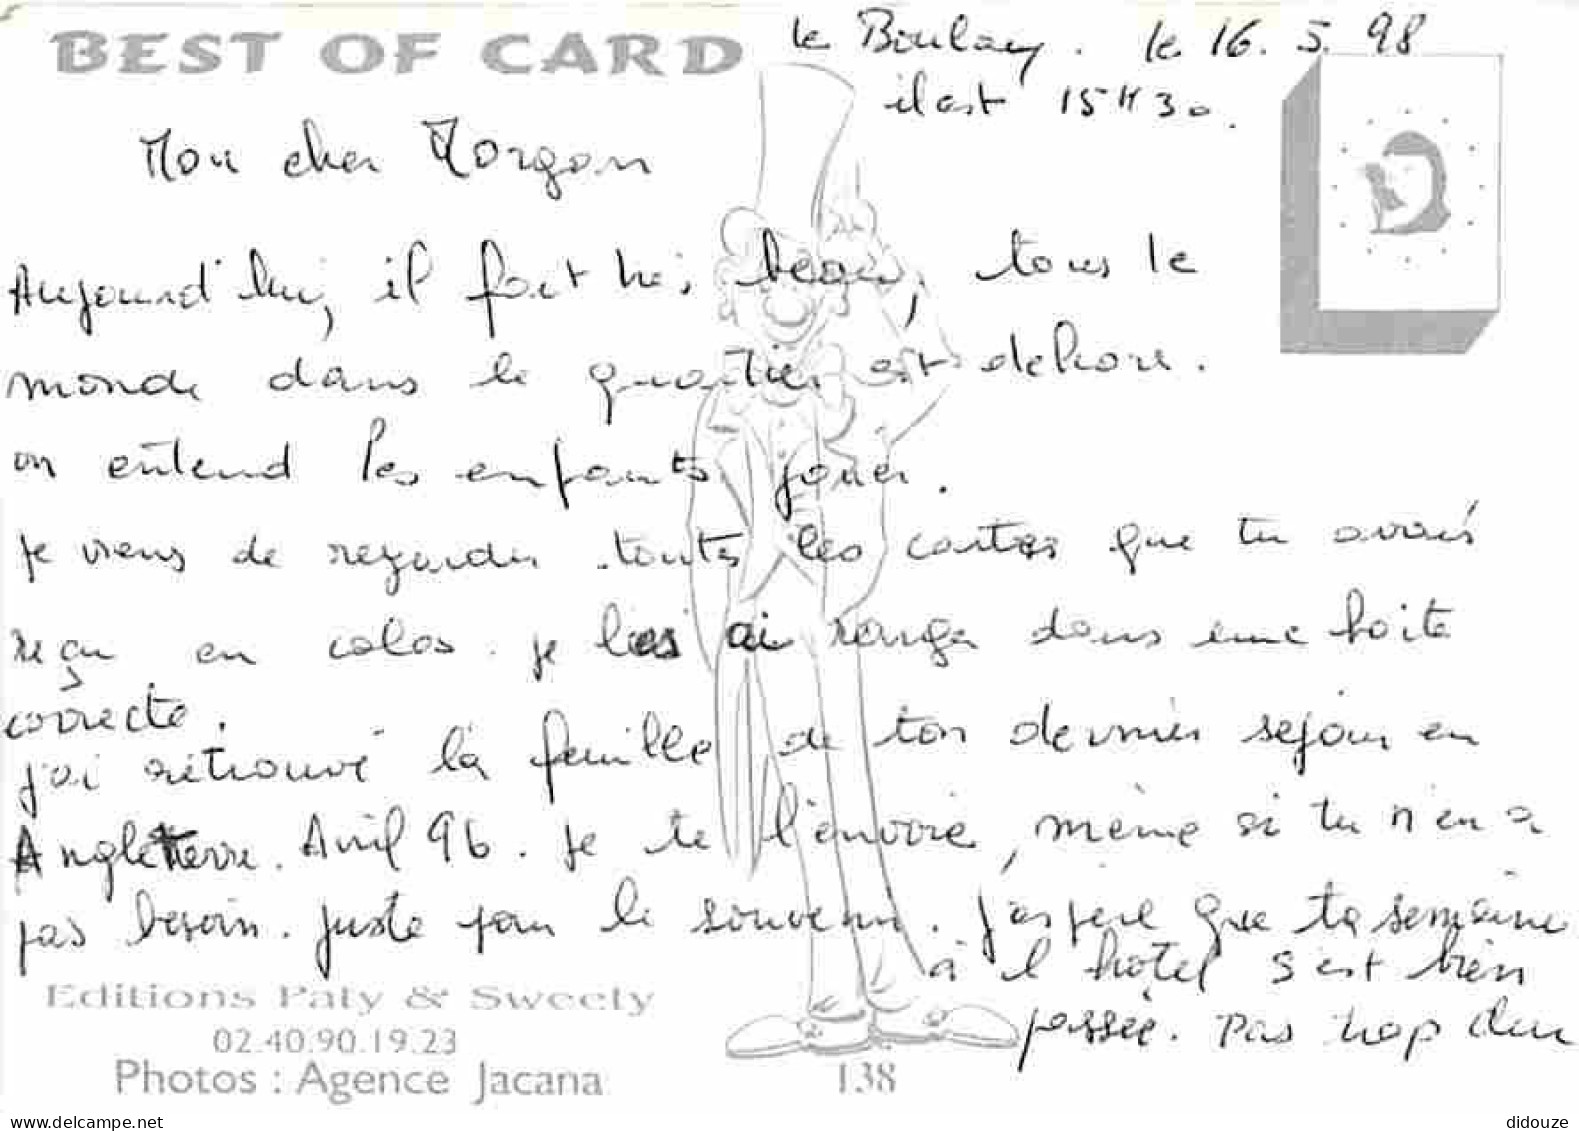 BEST OF CARD
le Boulay. le 16.5.98
il est 15H30.
Mon cher Morgan
Aujourd'hui, il fait très beau, tous le
monde dans le quartier est dehors.
on entend les enfants jouer.
je viens de regarder toutes les cartes que tu avais
reçu en colos. je les ai rangé dans une boite
correcte.
j'ai retrouvé la feuille de ton dernier séjour en
Angleterre. Avril 96. je te l'envoie, même si tu n'en a
pas besoin. juste pour le souvenir. j'espère que ta semaine
à l'hôtel s'est bien
passée. Pas trop dur
Editions Paty & Sweety
02.40.90.19.23
Photos : Agence Jacana
138
www.delcampe.net
didouze